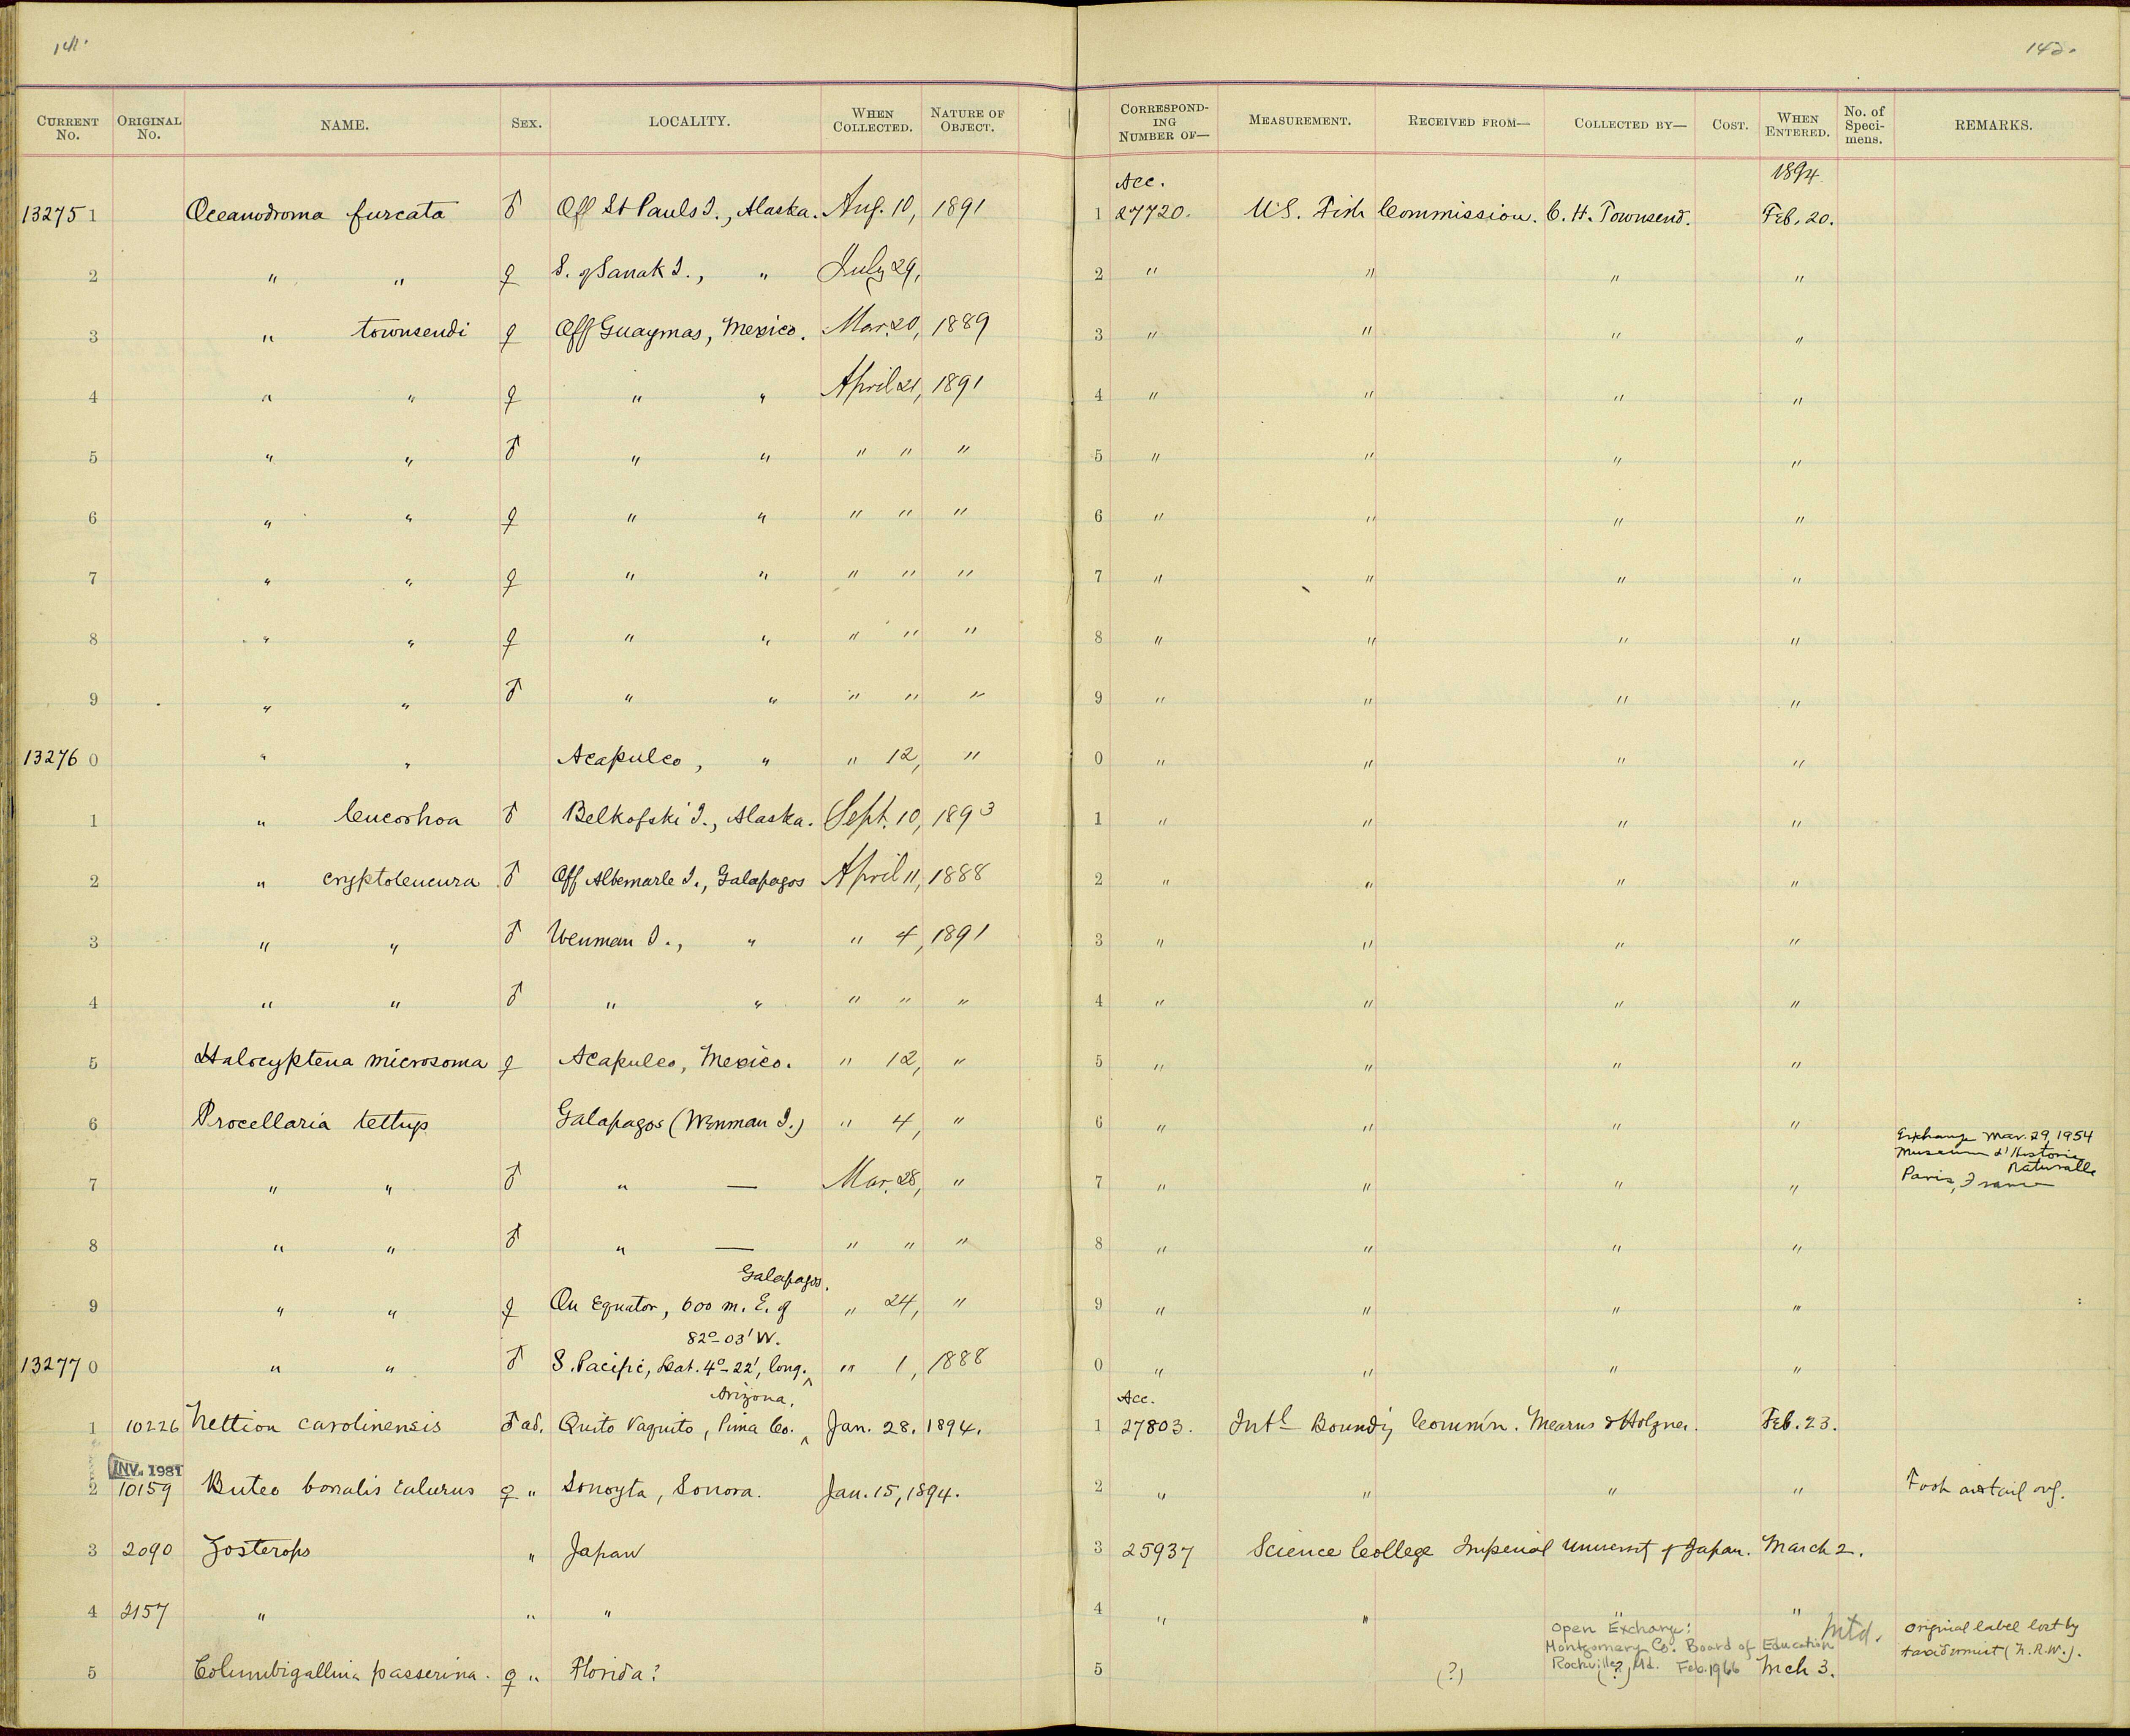 141.
142.
CURRENT No. ORIGINAL No. NAME. SEX. LOCALITY. WHEN COLLECTED. NATURE OF OBJECT. CORRESPONDING NUMBER OF— MEASUREMENT. RECEIVED FROM— COLLECTED BY— COST. WHEN ENTERED. No. of Specimens. REMARKS.
Acc. 1894
13275 1 Oceanodroma furcata ♂ Off St Pauls I., Alaska. Aug. 10, 1891 1 27720. U.S. Fish Commission. C. H. Townsend. Feb. 20.
2 " " ♀ S. of Sanak I., " July 29, 2 " " " "
3 " townsendi ♀ Off Guaymas, Mexico. Mar. 20, 1889 3 " " " "
4 " " ♀ " " April 21, 1891 4 " " " "
5 " " ♂ " " " " " 5 " " " "
6 " " ♀ " " " " " 6 " " " "
7 " " ♀ " " " " " 7 " " " "
8 " " ♀ " " " " " 8 " " " "
9 " " ♂ " " " " " 9 " " " "
13276 0 " " Acapulco, " " 12, " 0 " " " "
1 " leucorhoa ♂ Belkofski I., Alaska. Sept. 10, 1893 1 " " " "
2 " cryptoleucura ♂ Off Albemarle I., Galapagos April 11, 1888 2 " " " "
3 " " ♂ Wenman I., " " 4, 1891 3 " " " "
4 " " ♂ " " " " " 4 " " " "
5 Halocyptena microsoma ♀ Acapulco, Mexico. " 12, " 5 " " " "
6 Procellaria tethys Galapagos (Wenman I.) " 4, " 6 " " " "
Exchange Mar. 29, 1954
Museum d'Histoire
Naturalle
7 " " ♂ " — Mar. 28, " 7 " " " " Paris, France
8 " " ♂ " — " " " 8 " " " "
Galapagos.
9 " " ♀ On Equator, 600 m. E. of " 24, " 9 " " " "
82°-03' W.
13277 0 " " ♂ S. Pacific, Lat. 4°-22', long. " 1, 1888 0 " " " "
Arizona, Acc.
1 10226 Nettion carolinensis ♂ ad. Quito Vaquito, Pima Co. Jan. 28. 1894. 1 27803. Intl Boundy Commn. Mearns & Holzner. Feb. 23.
INV. 1981
2 10159 Buteo borealis calurus ♀ " Sonoyta, Sonora. Jan. 15, 1894. 2 " " " "
3 2090 Zosterops " Japan 3 25937 Science College Imperial University of Japan. March 2.
4 2157 " " " 4 " " " "
Open Exchange: Mtd. Original label lost by
Montgomery Co. Board of Education taxidermist
Rockville, Md. Feb. 1966
5 Columbigallina passerina. ♀ " Florida? 5 (?) (?) Mch 3.